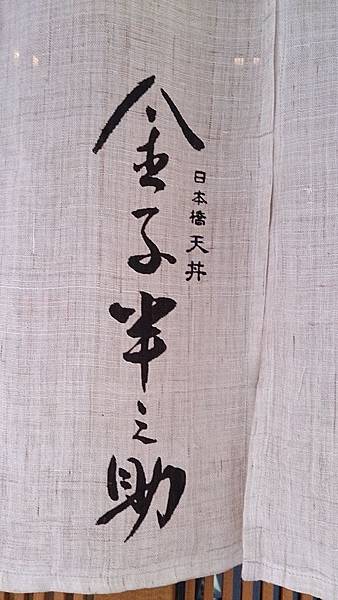 日本橋天丼
金子半之助